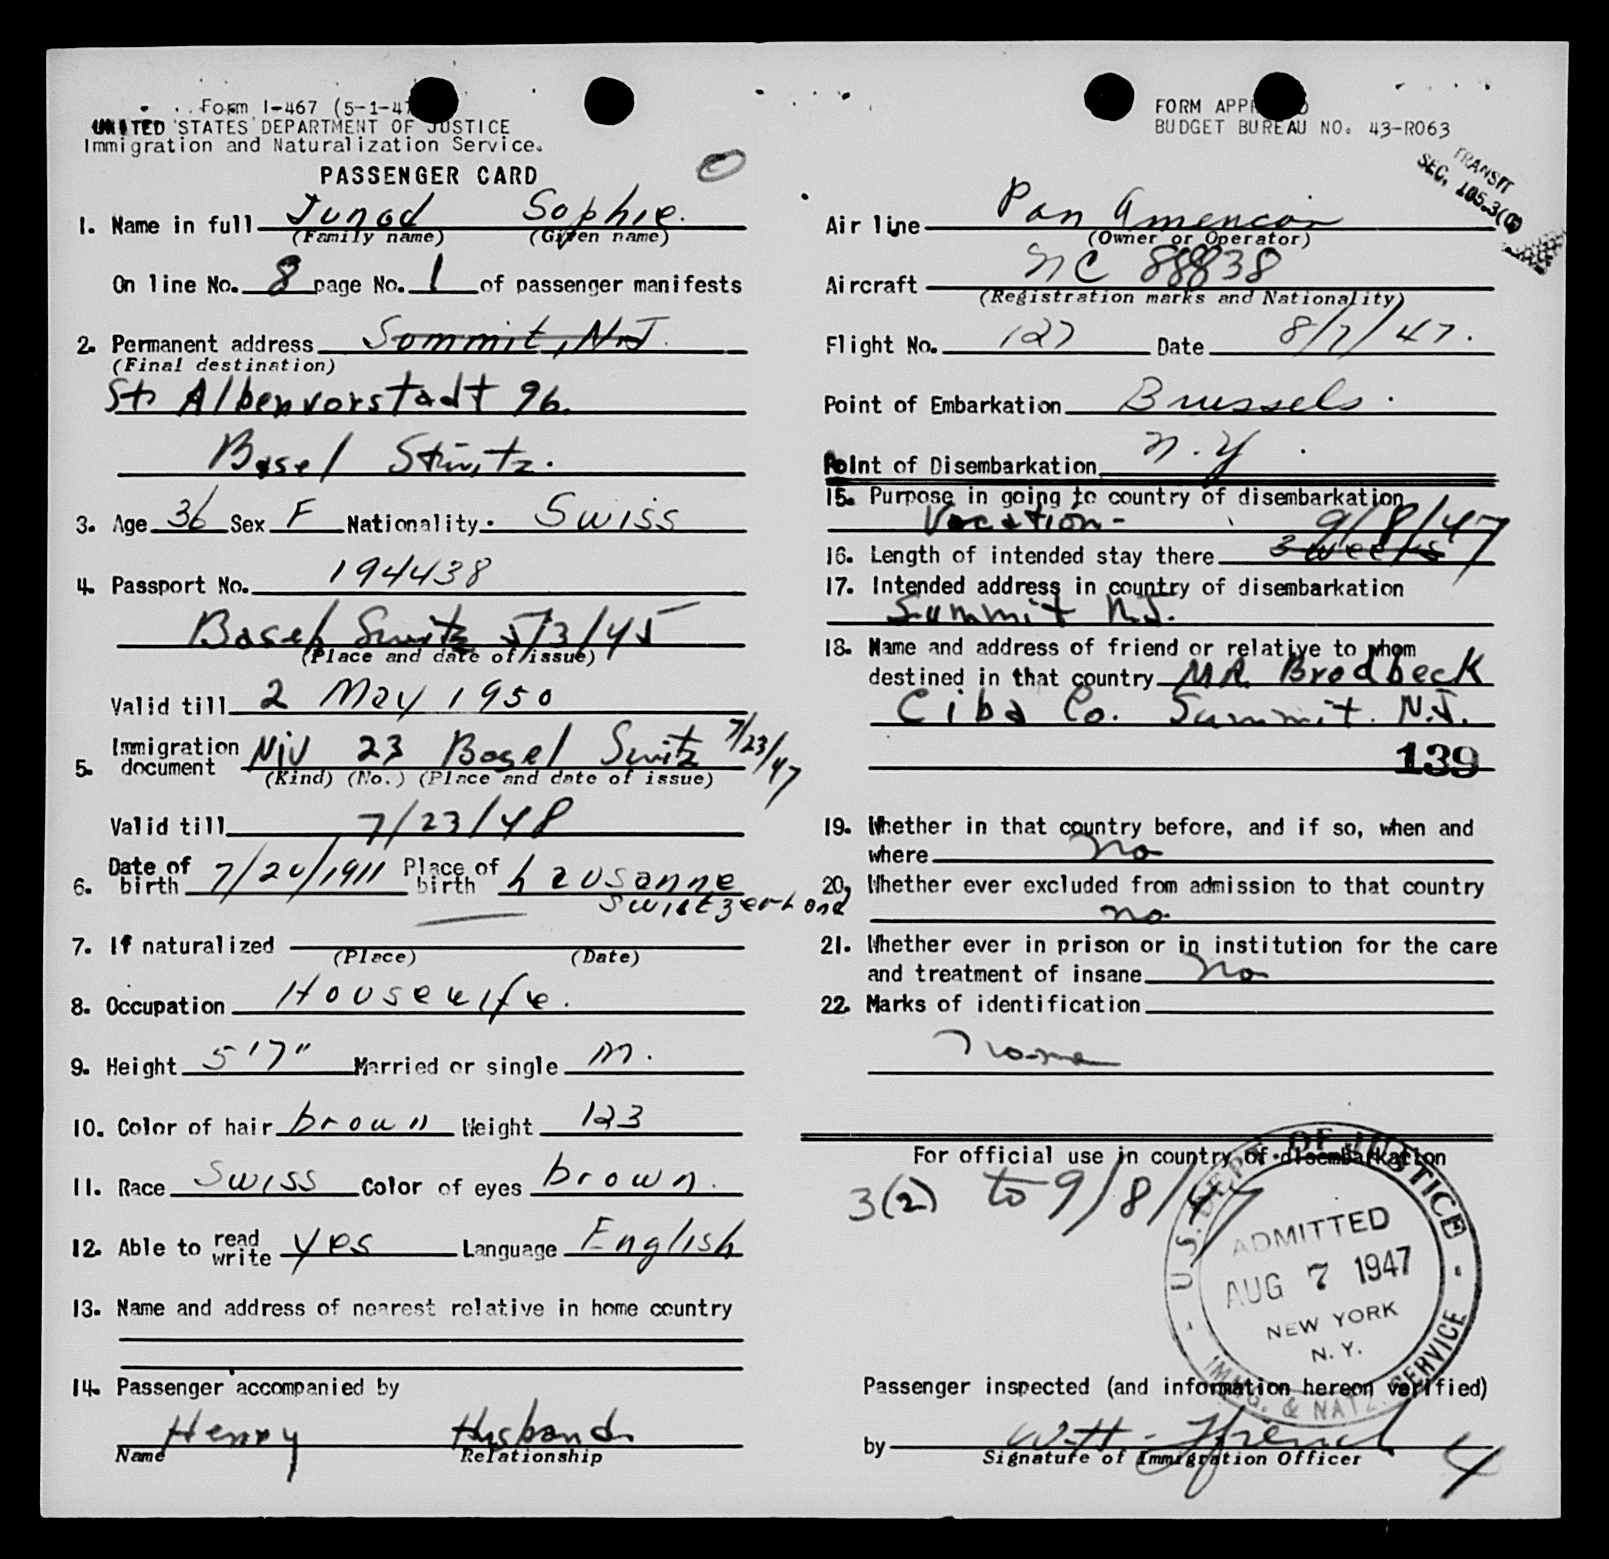 Form I-467 (5-1-47
UNITED STATES DEPARTMENT OF JUSTICE
Immigration and Naturalization Service.
PASSENGER CARD
1. Name in full Junod Sophie.
(Family name) (Given name)
On line No. 8 page No. 1 of passenger manifests
2. Permanent address Sommit, N.J.
(Final destination)
St Albenvorstadt 96.
Basel Switz.
3. Age 36 Sex F Nationality. Swiss
4. Passport No. 194438
Basel Switz 5/3/45
(Place and date of issue)
Valid till 2 May 1950
5. Immigration document NIV 23 Basel Switz 7/23/47
(Kind) (No.) (Place and date of issue)
Valid till 7/23/48
6. Date of birth 7/20/1911 Place of birth Lausanne
Switzerland
7. If naturalized
(Place) (Date)
8. Occupation Housewife.
9. Height 5'7" Married or single M.
10. Color of hair brown Weight 123
11. Race Swiss Color of eyes brown.
12. Able to read write yes Language English
13. Name and address of nearest relative in home country
14. Passenger accompanied by
Henry Husband.
Name Relationship
FORM APPROVED
BUDGET BUREAU NO. 43-R063
TRANSIT
SEC. 105.3(
Air line Pan American
(Owner or Operator)
Aircraft NC 88838
(Registration marks and Nationality)
Flight No. 127 Date 8/7/47.
Point of Embarkation Brussels.
Point of Disembarkation N.Y.
15. Purpose in going to country of disembarkation
Vacation - 9/8/47
16. Length of intended stay there 3 weeks
17. Intended address in country of disembarkation
Summit N.J.
18. Name and address of friend or relative to whom
destined in that country MR. Brodbeck
Ciba Co. Summit. N.J.
139
19. Whether in that country before, and if so, when and
where no
20. Whether ever excluded from admission to that country
no
21. Whether ever in prison or in institution for the care
and treatment of insane no
22. Marks of identification
none
For official use in country of disembarkation
3(2) to 9/8/47
U.S. DEPT. OF JUSTICE
ADMITTED
AUG 7 1947
NEW YORK
N.Y.
IMMIG. & NATZ. SERVICE
Passenger inspected (and information hereon verified)
by
Signature of Immigration Officer
4